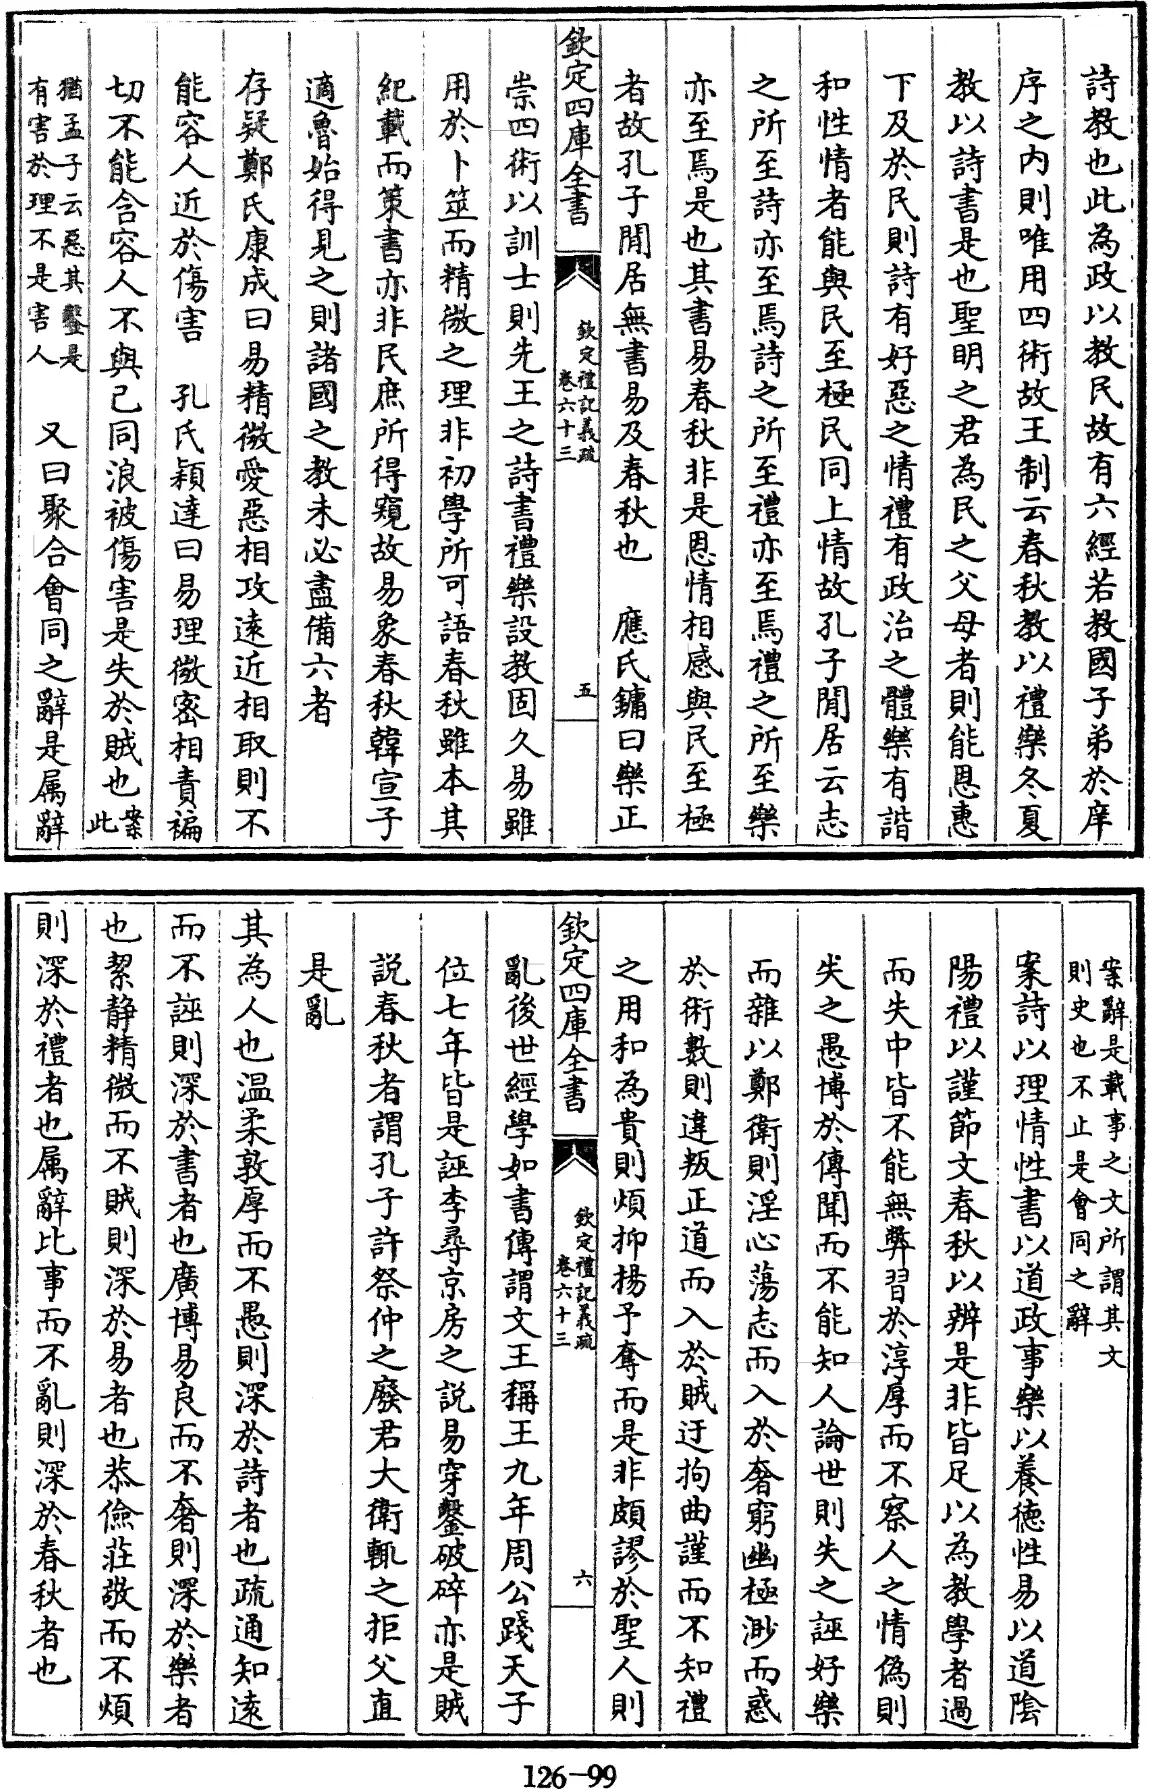 詩教也此為政以教民故有六經若教國子弟於庠
序之内則唯用四術故王制云春秋教以禮樂冬夏
教以詩書是也聖明之君為民之父母者則能恩惠
下及於民則詩有好惡之情禮有政治之體樂有諧
和性情者能與民至極民同上情故孔子閒居云志
之所至詩亦至焉詩之所至禮亦至焉禮之所至樂
亦至焉是也其書易春秋非是恩情相感與民至極
者故孔子閒居無書易及春秋也　應氏鏞曰樂正
欽定四庫全書
欽定禮記義疏
卷六十三
五
崇四術以訓士則先王之詩書禮樂設教固久易雖
用於卜筮而精微之理非初學所可語春秋雖本其
紀載而策書亦非民庶所得窺故易象春秋韓宣子
適魯始得見之則諸國之教未必盡備六者
存疑鄭氏康成曰易精微愛惡相攻遠近相取則不
能容人近於傷害　孔氏穎達曰易理微密相責褊
切不能含容人不與己同浪被傷害是失於賊也案
此
猶孟子云惡其鑿是
有害於理不是害人　又曰聚合會同之辭是属辭
案辭是載事之文所謂其文
則史也不止是會同之辭
案詩以理情性書以道政事樂以養德性易以道隂
陽禮以謹節文春秋以辨是非皆足以為教學者過
而失中皆不能無弊習於淳厚而不察人之情偽則
失之愚博於傳聞而不能知人論世則失之誣好樂
而雜以鄭衛則淫心蕩志而入於奢窮幽極渺而惑
於術數則違叛正道而入於賊迂拘曲謹而不知禮
之用和為貴則煩抑揚予奪而是非頗謬於聖人則
欽定四庫全書
欽定禮記義疏
卷六十三
六
亂後世經學如書傳謂文王稱王九年周公踐天子
位七年皆是誣李尋京房之説易穿鑿破碎亦是賊
説春秋者謂孔子許祭仲之廢君大衛輒之拒父直
是亂
其為人也温柔敦厚而不愚則深於詩者也疏通知遠
而不誣則深於書者也廣博易良而不奢則深於樂者
也絜静精微而不賊則深於易者也恭儉莊敬而不煩
則深於禮者也属辭比事而不亂則深於春秋者也
126-99